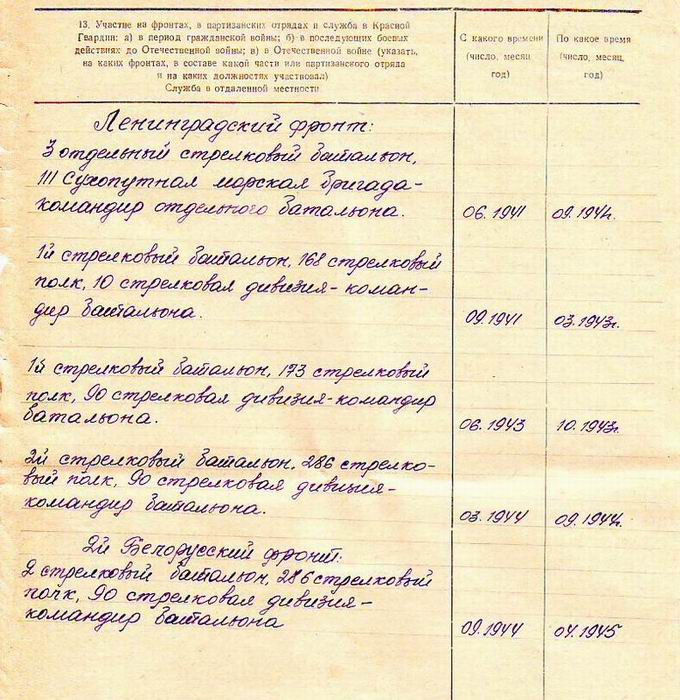 13. Участие на фронтах, в партизанских отрядах и служба в Красной
Гвардии: а) в период гражданской войны; б) в последующих боевых
действиях до Отечественной войны; в) в Отечественной войне (указать,
на каких фронтах, в составе какой части или партизанского отряда
и на каких должностях участвовал)
Служба в отдаленной местности
С какого времени
(число, месяц
год)
По какое время
(число, месяц,
год)
Ленинградский фронт:
3 отдельный стрелковый батальон,
III Сухопутная морская бригада-
командир отдельного батальона. 06.1941 09.194г.
1й стрелковый батальон, 168 стрелковый
полк, 10 стрелковая дивизия- коман-
дир батальона. 09.1941 03.1943г.
1й стрелковый батальон, 173 стрелковый
полк, 90 стрелковая дивизия-командир
батальона. 06.1943 10.1943г.
2й стрелковый батальон, 286 стрелко-
вый полк, 90 стрелковая дивизия-
командир батальона. 03.1944 09.1944г.
2й Белорусский фронт:
2 стрелковый батальон, 286 стрелковый
полк, 90 стрелковая дивизия-
командир батальона 09.1944 04.1945